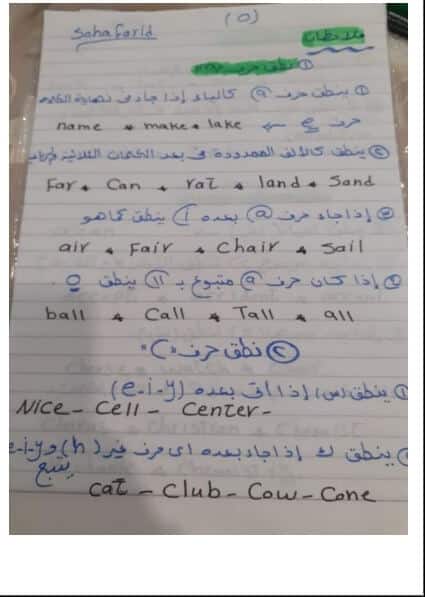 (٥)
Soha farid
ملاحظات
① نطق حرف
① ينطق حرف ⓐ كالياء إذا جاء في نهاية الكلمه
حرف e ← name * make * lake
② ينطق كالألف الممدودة في بعد الكلمات الثلاثية
Far * Can * rat * land * Sand
③ إذا جاء حرف ⓐ بعده I ينطق كما هو
air * Fair * Chair * Sail
④ إذا كان حرف ⓐ متبوع بـ ll ينطق o
ball * Call * Tall * all
② نطق حرف (c)
① ينطق (س) إذا أتى بعده (e-i-y)
Nice - Cell - Center -
ينطق ك إذا جاء بعده اى حرف غير (h) و e-i-y
يتبع
cat - Club - Cow - Cone